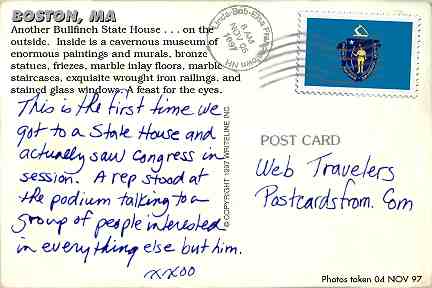 BOSTON, MA
Another Bullfinch State House . . . on the
outside. Inside is a cavernous museum of
enormous paintings and murals, bronze
statues, friezes, marble inlay floors, marble
staircases, exquisite wrought iron railings, and
stained glass windows. A feast for the eyes.
This is the first time we
got to a State House and
actually saw Congress in
session. A rep stood at
the podium talking to a
group of people interested
in everything else but him.
xxoo
8 AM
NOV 05
1997
© COPYRIGHT 1997 WRITELINE INC.
POST CARD
Web Travelers
Postcardsfrom.Com
Photos taken 04 NOV 97